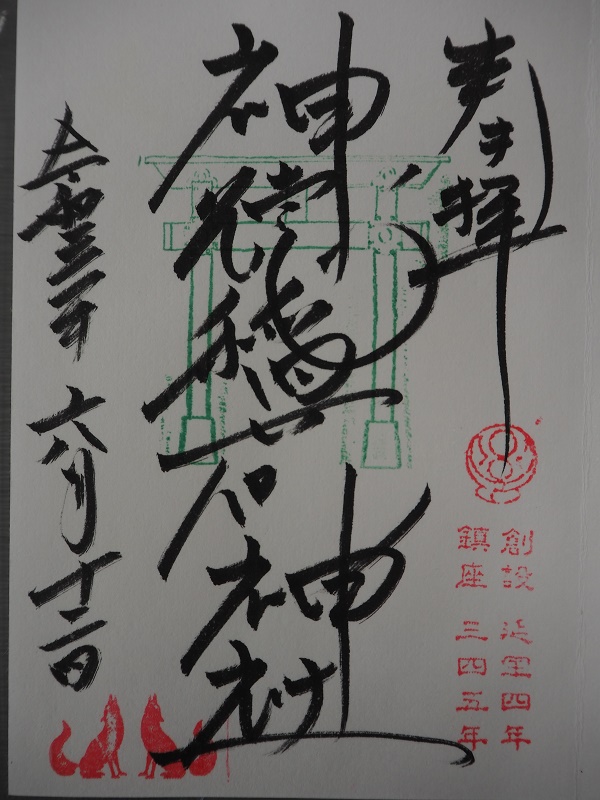 奉拝
神徳稲荷神社
創設 延宝四年
鎮座 三四五年
令和三年 六月十二日